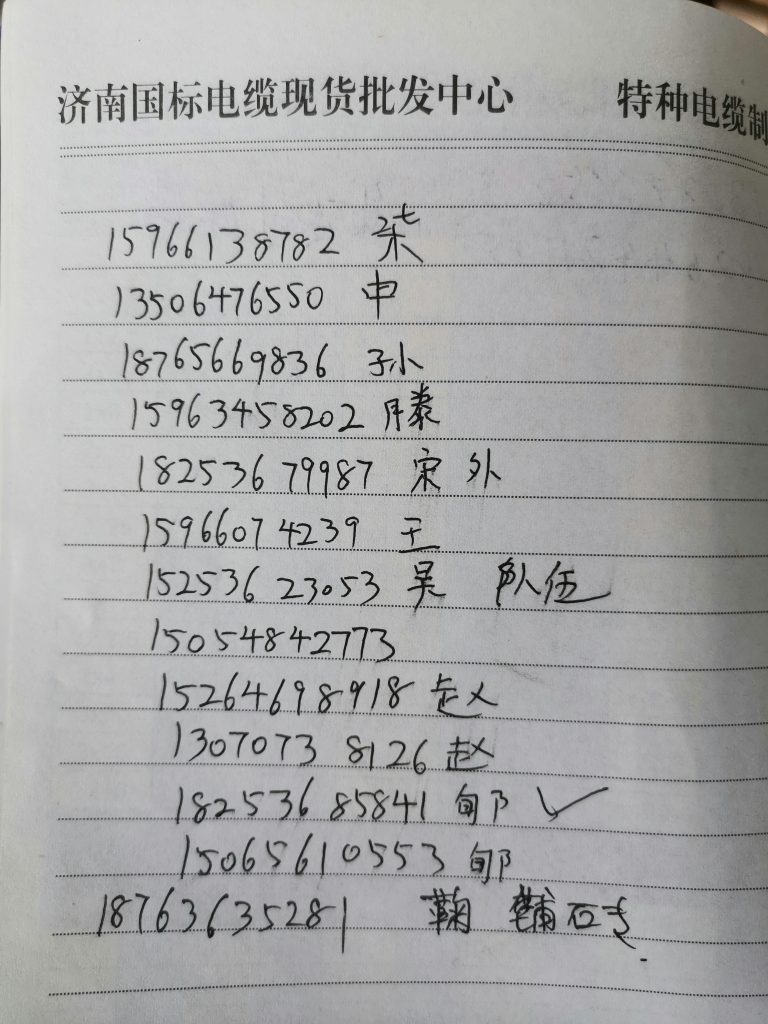 济南国标电缆现货批发中心 特种电缆制
15966138782
13506476550 申
18765669836 孙
15963458202 滕
18253679987 宋 外
15966074239 王
15253623053 吴 队伍
15054842773
15264698918 赵
13070738126 赵
18253685841 郇 ✓
15065610553 郇
18763635281 鞠